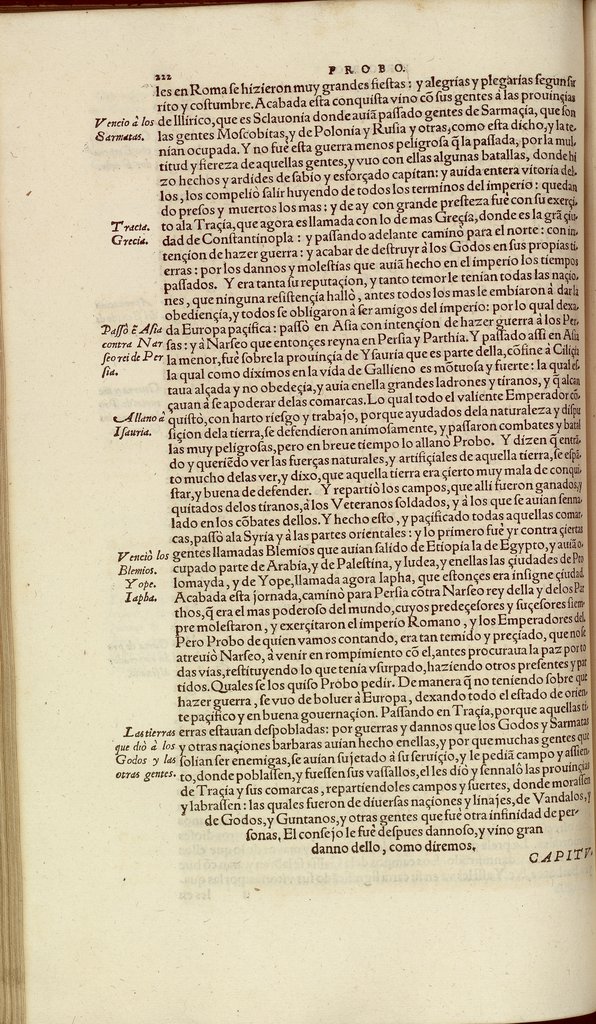 222
PROBO.
les en Roma se hizieron muy grandes fiestas : y alegrías y plegarías segun su
rito y costumbre. Acabada esta conquista vino cõ sus gentes à las prouinçias
Vencio à los
Sarmatas.
de Illírico, que es Sclauonía donde auiã passado gentes de Sarmaçia, que son
las gentes Moscobitas, y de Polonía y Rusia y otras, como esta dicho, y la te-
nían ocupada. Y no fuè esta guerra menos peligrosa q̃ la passada, por la mul
titud y fiereza de aquellas gentes, y vuo con ellas algunas batallas, donde hi
zo hechos y ardides de sabio y esforçado capitan: y auida entera vitoria del-
los, los compeliò salir huyendo de todos los terminos del imperío: quedan
do presos y muertos los mas : y de ay con grande presteza fuè con su exerçi
Tracia.
Grecia.
to ala Traçía, que agora es llamada con lo de mas Greçía, donde es la grã çiu
dad de Constantinopla : y passando adelante caminò para el norte : con in-
tençion de hazer guerra : y acabar de destruyr à los Godos en sus propias ti
erras : por los dannos y molestías que auiã hecho en el imperío los tiempos
passados. Y era tanta su reputaçíon, y tanto temor le tenían todas las naçio
nes, que ninguna resistençía hallò, antes todos los mas le embiaron à dar la
obediençía, y todos se obligaron à ser amigos del imperío: por lo qual dexa-
Passò ẽ Asia
contra Nar
seo rei de Per
sia.
da Europa paçifica : passò en Asia con intençíon de hazer guerra à los Per
sas : y à Narseo que entonçes reyna en Persia y Parthía. Y passado assi en Asia
la menor, fuè sobre la prouinçia de Ysauría que es parte della, cõfine à Ciliçia
la qual como diximos en la vida de Gallieno es mõtuosa y fuerte : la qual es-
taua alçada y no obedeçía, y auia en ella grandes ladrones y tíranos, y q̃ alcan
çauan à se apoderar delas comarcas. Lo qual todo el valiente Emperador cõ-
Allano à
Isauria.
quistò, con harto ríesgo y trabajo, porque ayudados dela naturaleza y dispu
siçíon dela tíerra, se defendieron animosamente, y passaron combates y batal
las muy peligrosas, pero en breue tiempo lo allanò Probo. Y dizen q̃ entrã-
do y queríẽdo ver las fuerças naturales, y artifiçiales de aquella tierra, se espã-
to mucho delas ver, y dixo, que aquella tierra era çierto muy mala de conqui
star, y buena de defender. Y repartiò los campos, que allí fueron ganados, y
quitados delos tíranos, à los Veteranos soldados, y à los que se auían senna-
lado en los cõbates dellos. Y hecho esto, y paçificado todas aquellas comar-
cas, passò ala Syría y à las partes orientales : y lo primero fuè yr contra çiertas
Vencio los
Blemios.
Yope.
Iapha.
gentes llamadas Blemios que auían salido de Etiopía la de Egypto, y auiã o-
cupado parte de Arabía, y de Palestína, y Iudea, y enellas las çiudades de Pto
lomayda, y de Yope, llamada agora Iapha, que estonçes era insigne çiudad.
Acabada esta jornada, caminò para Persia cõtra Narseo rey della y delos Par
thos, q̃ era el mas poderoso del mundo, cuyos predeçesores y suçesores siem-
pre molestaron, y exerçitaron el imperío Romano, y los Emperadores del.
Pero Probo de quien vamos contando, era tan temido y preçiado, que no se
atreuiò Narseo, à venir en rompimiento cõ el, antes procuraua la paz por to
das vías, restítuyendo lo que tenía vsurpado, haziendo otros presentes y par
tidos. Quales se los quiso Probo pedir. De manera q̃ no teniendo sobre que
hazer guerra, se vuo de boluer à Europa, dexando todo el estado de orien-
te paçifico y en buena gouernaçíon. Passando en Traçía, porque aquellas ti-
Las tierras
que diò à los
Godos y las
otras gentes.
erras estauan despobladas : por guerras y dannos que los Godos y Sarmatas
y otras naçiones barbaras auían hecho enellas, y por que muchas gentes que
solían ser enemigas, se auían sujetado à su seruiçío, y le pedíã campo y assien-
to, donde poblassen, y fuessen sus vassallos, el les diò y sennalò las prouinçias
de Traçía y sus comarcas, repartiendoles campos y suertes, donde morassen
y labrassen : las quales fueron de diuersas naçiones y linajes, de Vandalos, y
de Godos, y Guntanos, y otras gentes que fuè otra infinidad de per-
sonas, El consejo le fuè despues dannoso, y vino gran
danno dello, como diremos.
CAPITV-